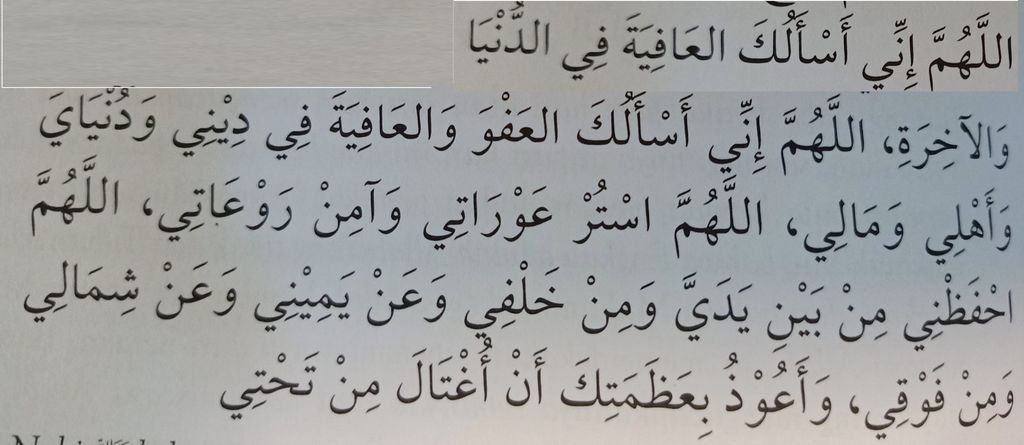 اللَّهُمَّ إِنِّي أَسْأَلُكَ العَافِيَةَ فِي الدُّنْيَا
وَالآخِرَةِ، اللَّهُمَّ إِنِّي أَسْأَلُكَ العَفْوَ وَالعَافِيَةَ فِي دِيْنِي وَدُنْيَايَ
وَأَهْلِي وَمَالِي، اللَّهُمَّ اسْتُرْ عَوْرَاتِي وَآمِنْ رَوْعَاتِي، اللَّهُمَّ
احْفَظْنِي مِنْ بَيْنِ يَدَيَّ وَمِنْ خَلْفِي وَعَنْ يَمِيْنِي وَعَنْ شِمَالِي
وَمِنْ فَوْقِي، وَأَعُوْذُ بِعَظَمَتِكَ أَنْ أُغْتَالَ مِنْ تَحْتِي